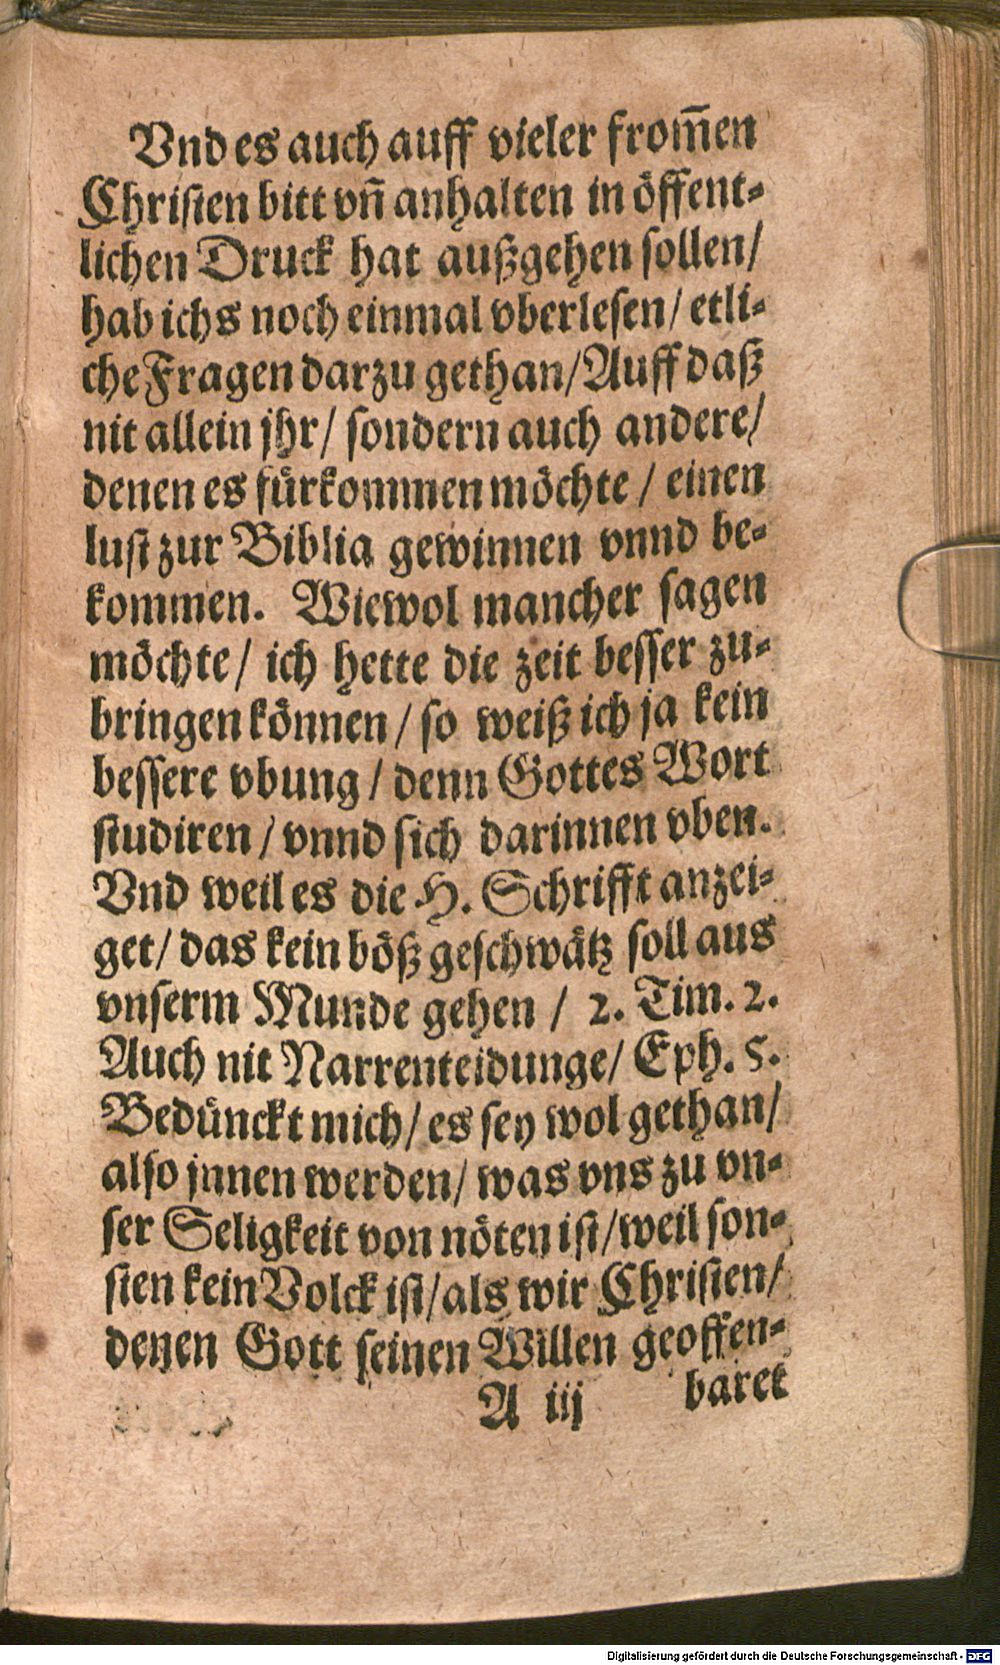 Vnd es auch auff vieler from̃en
Christen bitt vñ anhalten in öffent-
lichen Druck hat außgehen sollen/
hab ichs noch einmal vberlesen/ etli-
che Fragen darzu gethan/ Auff daß
nit allein jhr/ sondern auch andere/
denen es fürkommen möchte / einen
lust zur Biblia gewinnen vnnd be-
kommen. Wiewol mancher sagen
möchte/ ich hette die zeit besser zu-
bringen können / so weiß ich ja kein
bessere vbung / denn Gottes Wort
studiren / vnnd sich darinnen vben.
Vnd weil es die H. Schrifft anzei-
get/ das kein böß geschwätz soll aus
vnserm Munde gehen / 2. Tim. 2.
Auch nit Narrenteidunge/ Eph. 5.
Bedünckt mich/ es sey wol gethan/
also jnnen werden/ was vns zu vn-
ser Seligkeit von nöten ist/ weil son-
sten kein Volck ist/ als wir Christen/
denen Gott seinen Willen geoffen-
A iij baret
Digitalisierung gefördert durch die Deutsche Forschungsgemeinschaft - DFG